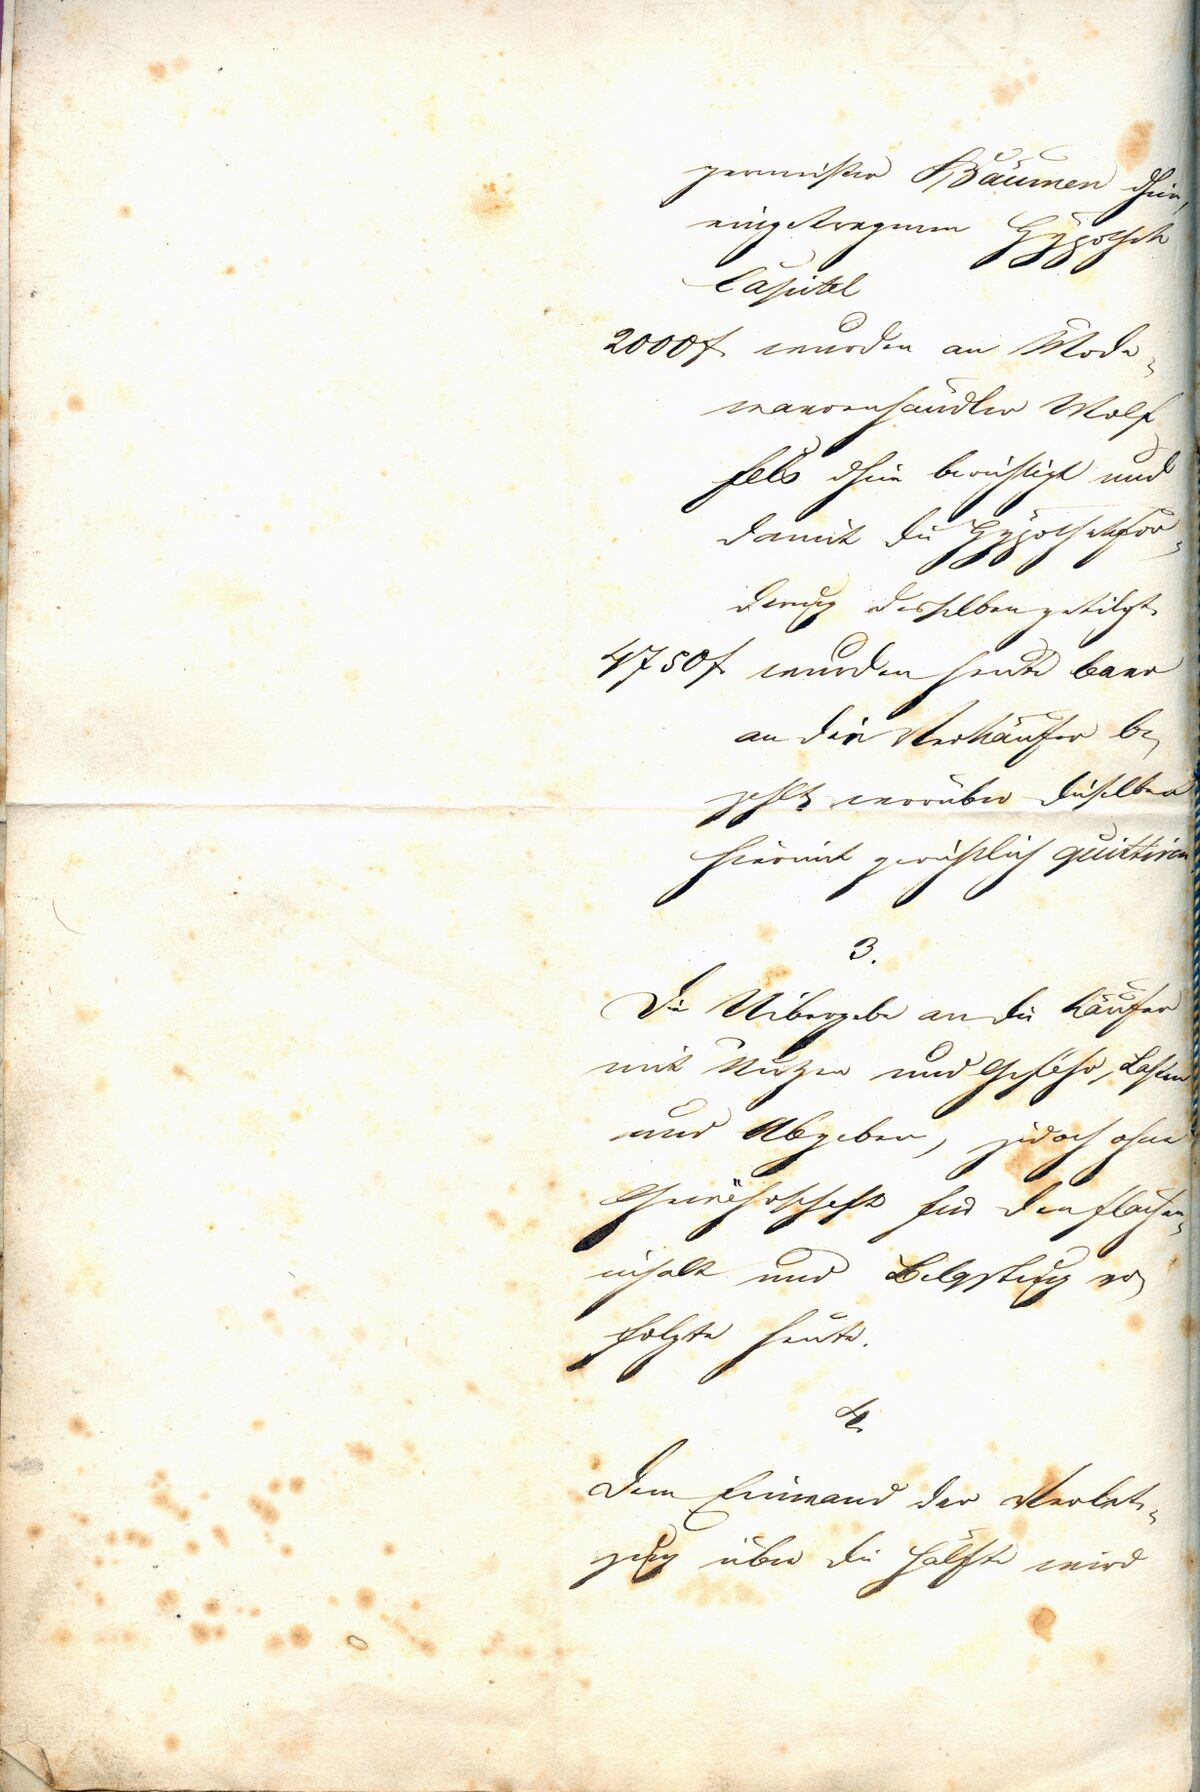 germeister Bäumen dhier,
eingetragenen Hÿpothek
Capital
2000 f wurden an Mode-
waarenhändler Wolf
fels dhier berichtigt und
damit die Hÿpothekfor-
derung desselben getilgt.
4750 f wurden heute baar
an die Verkäufer be-
zahlt, worüber dieselben
hiermit gerichtlich quittiren.
3.
Die Uibergabe an die Käufer
mit Nutzen und Gefahr, Lasten
und Abgaben, jedoch ohne
Gewährschaft für den Flächen-
inhalt und Belastung er-
folgte heute.
4.
Dem Einwand der Verlet-
zung über die Hälfte wird